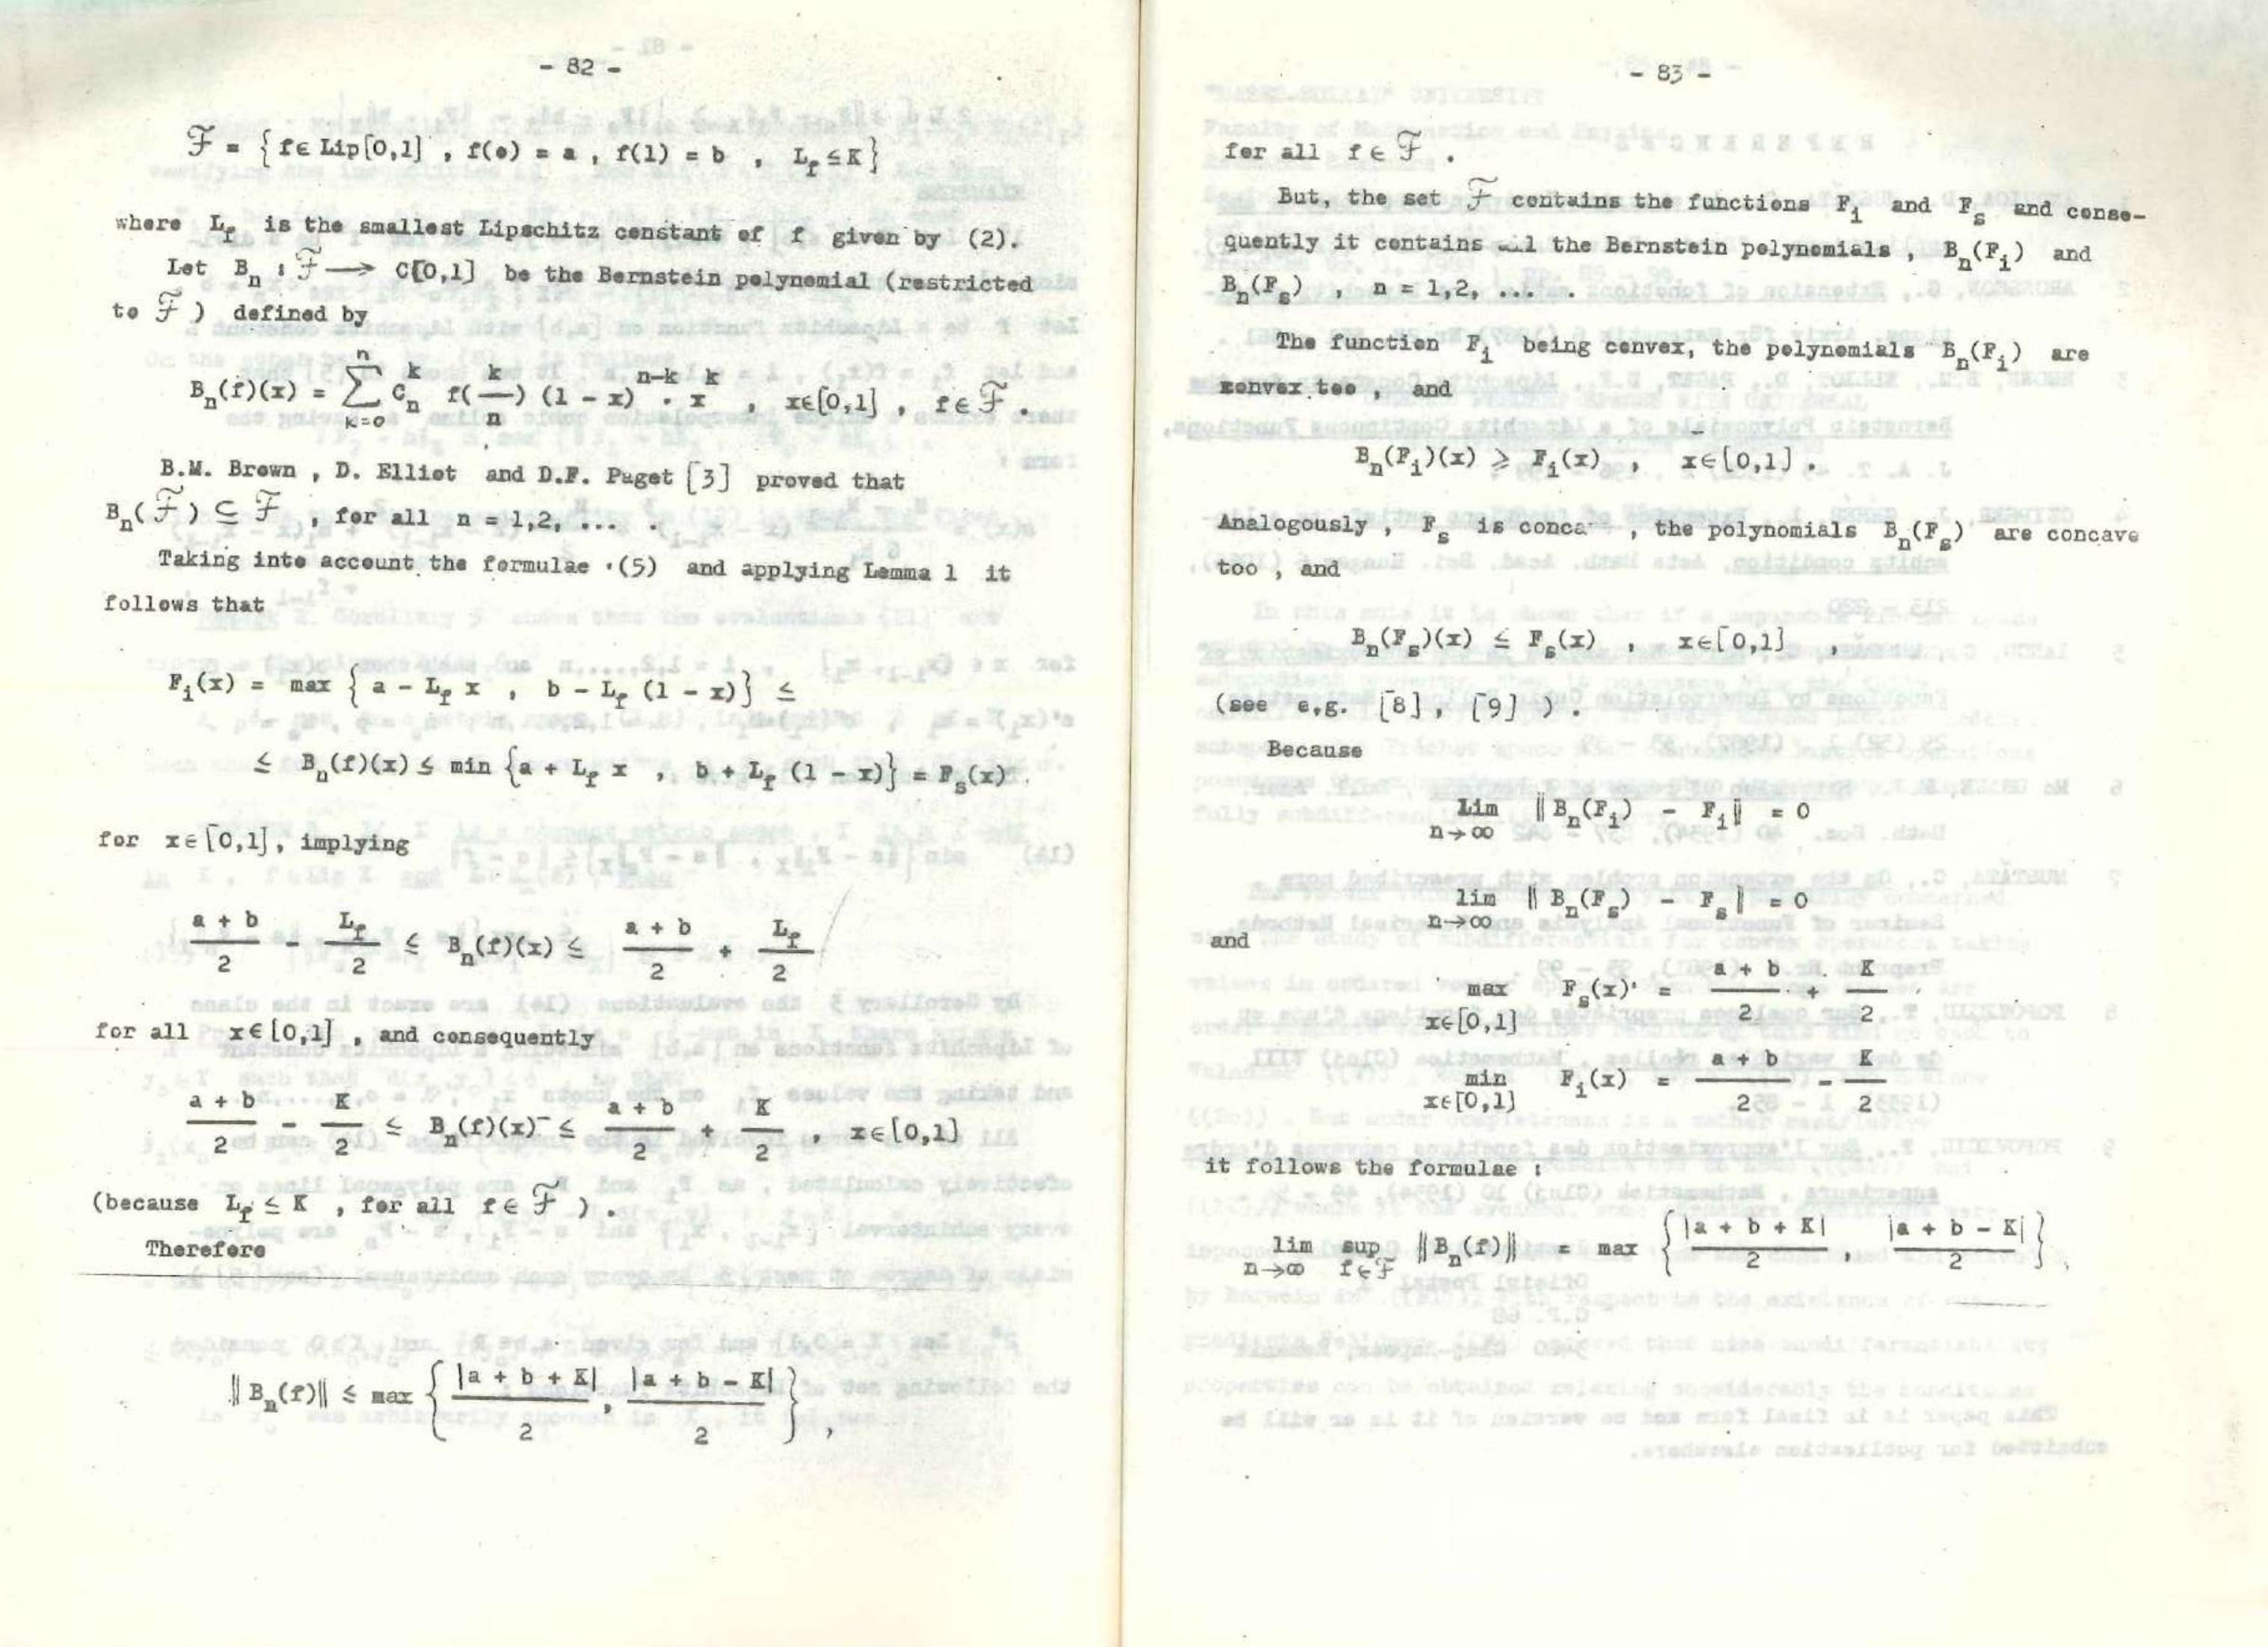 - 82 -
ℱ = { f∈ Lip[0,1] , f(o) = a , f(1) = b , L_f ≤ K }
where L_f is the smallest Lipschitz constant of f given by (2).
Let B_n : ℱ ⟶ C[0,1] be the Bernstein polynomial (restricted
to ℱ ) defined by
B_n(f)(x) = ∑_{k=0}^{n} C_n^k f(k/n) (1 - x)^{n-k} . x^k , x∈[0,1] , f∈ℱ .
B.M. Brown , D. Elliot and D.F. Paget [3] proved that
B_n(ℱ) ⊆ ℱ , for all n = 1,2, ... .
Taking into account the formulae (5) and applying Lemma 1 it
follows that
F_i(x) = max { a - L_f x , b - L_f (1 - x)} ≤
≤ B_n(f)(x) ≤ min {a + L_f x , b + L_f (1 - x)} = F_s(x) .
for x∈[0,1], implying
(a + b)/2 - L_f/2 ≤ B_n(f)(x) ≤ (a + b)/2 + L_f/2
for all x∈[0,1] , and consequently
(a + b)/2 - K/2 ≤ B_n(f)(x) ≤ (a + b)/2 + K/2 , x∈[0,1]
(because L_f ≤ K , for all f∈ℱ ) .
Therefore
‖B_n(f)‖ ≤ max { |a + b + K|/2 , |a + b - K|/2 } ,
- 83 -
for all f∈ℱ .
But, the set ℱ contains the functions F_i and F_s and conse-
quently it contains the Bernstein polynomials , B_n(F_i) and
B_n(F_s) , n = 1,2, ... .
The function F_i being convex, the polynomials B_n(F_i) are
convex too , and
B_n(F_i)(x) ⩾ F_i(x) , x∈[0,1] .
Analogously , F_s is , the polynomials B_n(F_s) are concave
too , and
B_n(F_s)(x) ≤ F_s(x) , x∈[0,1] ,
(see e.g. [8] , [9] ) .
Because
lim_{n→∞} ‖B_n(F_i) - F_i‖ = 0
lim_{n→∞} ‖B_n(F_s) - F_s‖ = 0
and
max_{x∈[0,1]} F_s(x) = (a + b)/2 + K/2
min_{x∈[0,1]} F_i(x) = (a + b)/2 - K/2
it follows the formulae :
lim_{n→∞} sup_{f∈ℱ} ‖B_n(f)‖ = max { |a + b + K|/2 , |a + b - K|/2 } .